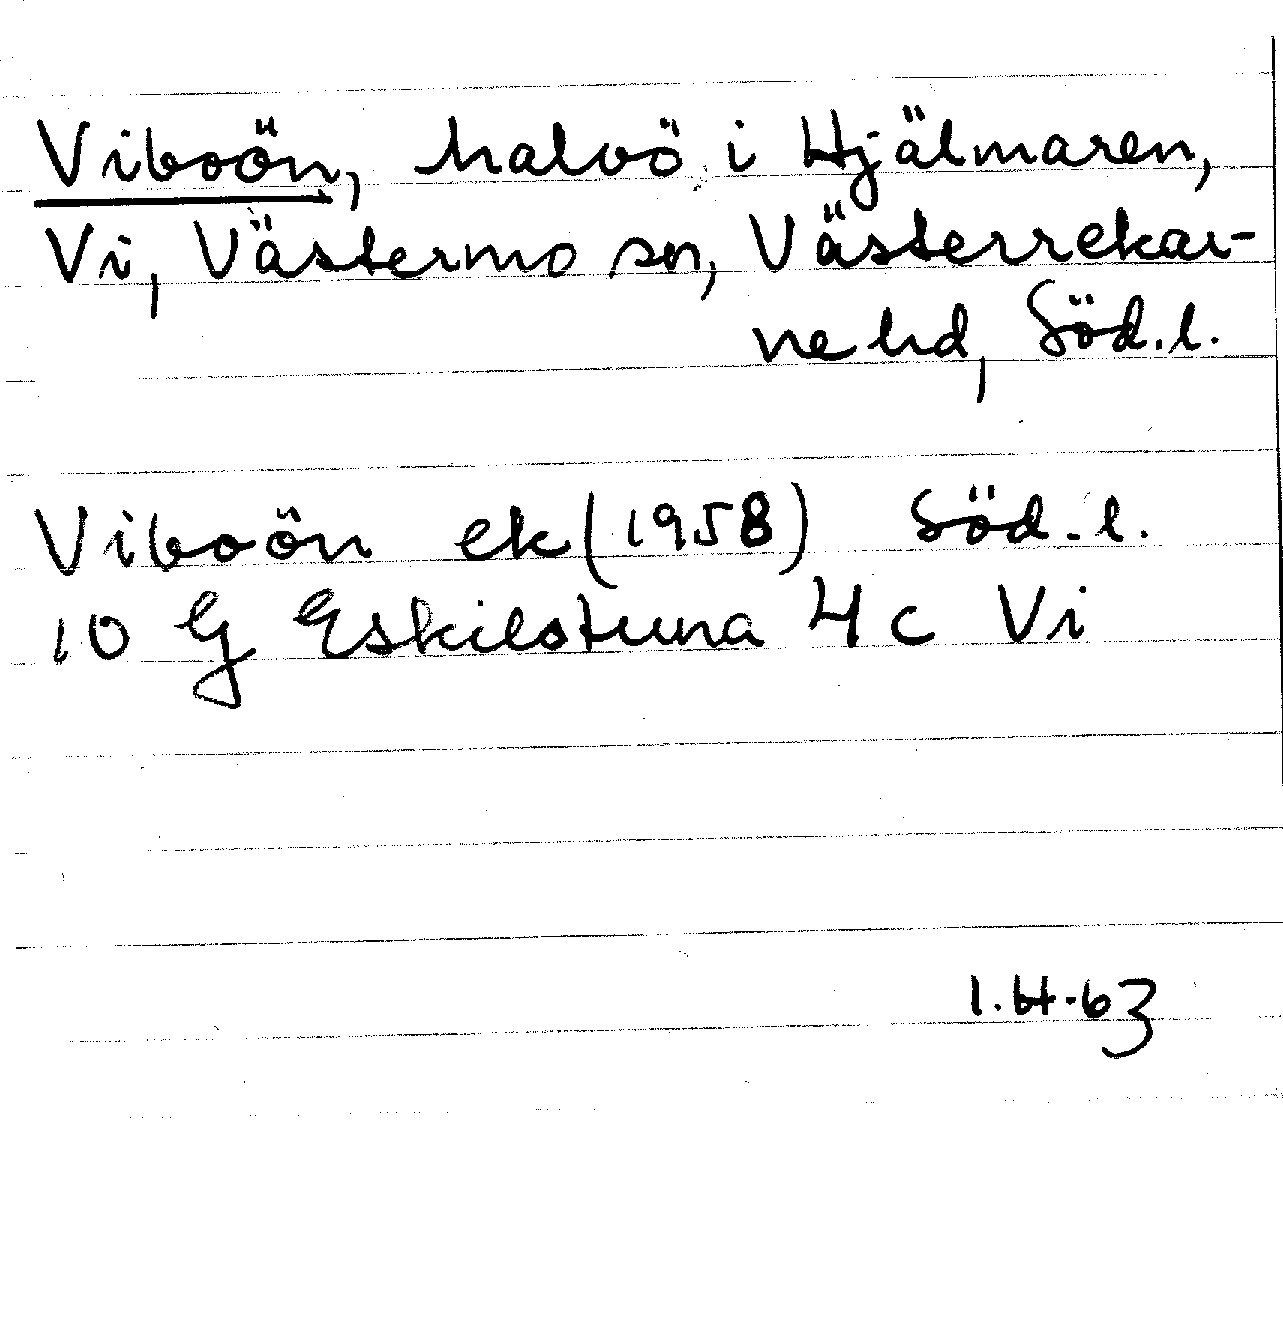 Viboön, halvö i Hjälmaren,
Vi, Västermo sn, Västerrekar-
ne hd, Söd.l.
Viboön ek (1958) Söd.l.
10 G Eskilstuna 4 c Vi
I.H.63